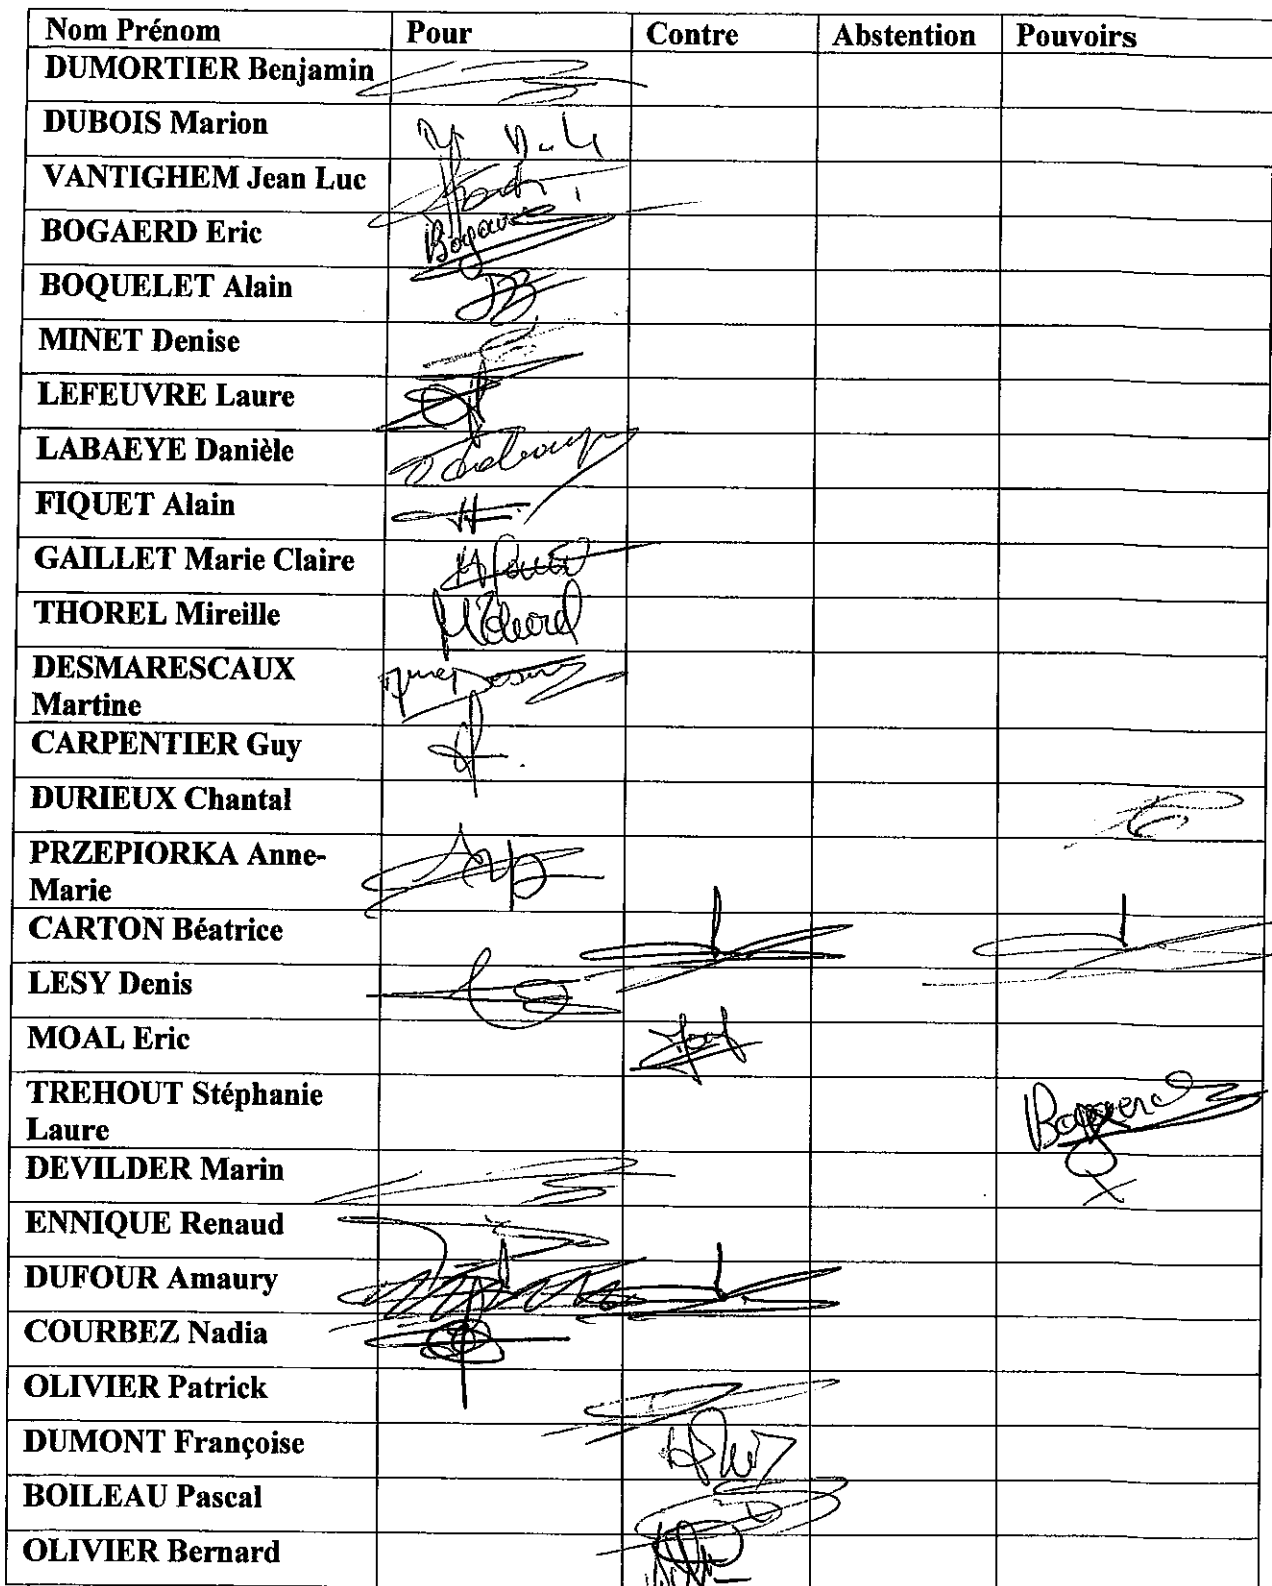 Nom Prénom Pour Contre Abstention Pouvoirs
DUMORTIER Benjamin
DUBOIS Marion
VANTIGHEM Jean Luc
BOGAERD Eric
BOQUELET Alain
MINET Denise
LEFEUVRE Laure
LABAEYE Danièle
FIQUET Alain
GAILLET Marie Claire
THOREL Mireille
DESMARESCAUX
Martine
CARPENTIER Guy
DURIEUX Chantal
PRZEPIORKA Anne-
Marie
CARTON Béatrice
LESY Denis
MOAL Eric
TREHOUT Stéphanie
Laure
DEVILDER Marin
ENNIQUE Renaud
DUFOUR Amaury
COURBEZ Nadia
OLIVIER Patrick
DUMONT Françoise
BOILEAU Pascal
OLIVIER Bernard